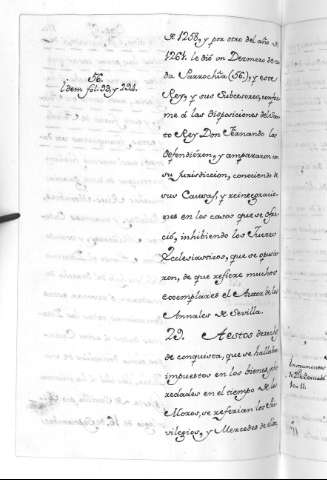 56.
Idem fol. 93 y 224.
de 1258, y por otro del año de
1264. le dió un Dezmero de ca
da Parrochia (56), y este
Rey, y sus Subcesores, confor
me á las disposiciones del San
to Rey Don Fernando las
defendiéron, y ampararon en
su Jurisdiccion, conociendo de
sus Causas, y reintegracio
nes en los casos que se ofre
ció, inhibiendo los Jueces
Ecclesiasticos, que se opusie
ron, de que refiere muchos
exemplares el Autor de los
Annales de Sevilla.
29. A estos derechos
de conquista, que se hallaban
impuestos en los bienes, y he
redades en el tiempo de los
Moros, se referian los Pri
vilegios, y Mercedes de